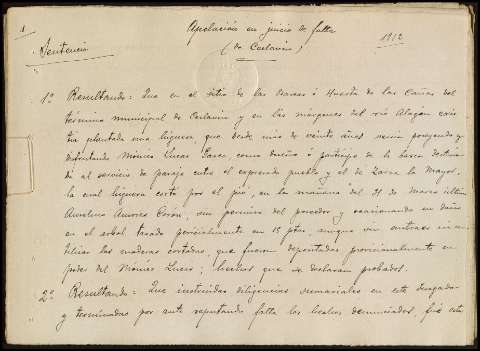 Apelación en juicio de falta
1912
Sentencia
(de Ceclavín)
1º Resultando: Que en el sitio de las Barcas ó Huerta de las Cañas del
término municipal de Ceclavín y en las márgenes del río Alagón exis-
tía plantada una higuera que desde más de veinte años venía poseyendo y
disfrutando Mónico Lucas Garce, como dueño ó partícipe de la barca destina-
da al servicio de pasaje entre el expresado pueblo y el de Zarza la Mayor.
la cual higuera cortó por el pié, en la mañana del 31 de Marzo último
Aurelio Amores Rosón, sin permiso del poseedor y ocasionando un daño
en el árbol tasado pericialmente en 15 ptas, aunque sin
las maderas cortadas, que fueron depositadas provisionalmente en
poder del Mónico Lucas; hechos que se declaran probados.
2º Resultando: Que instruidas diligencias sumariales en este Juzgado
y terminadas por auto reputando falta los hechos denunciados, fué este